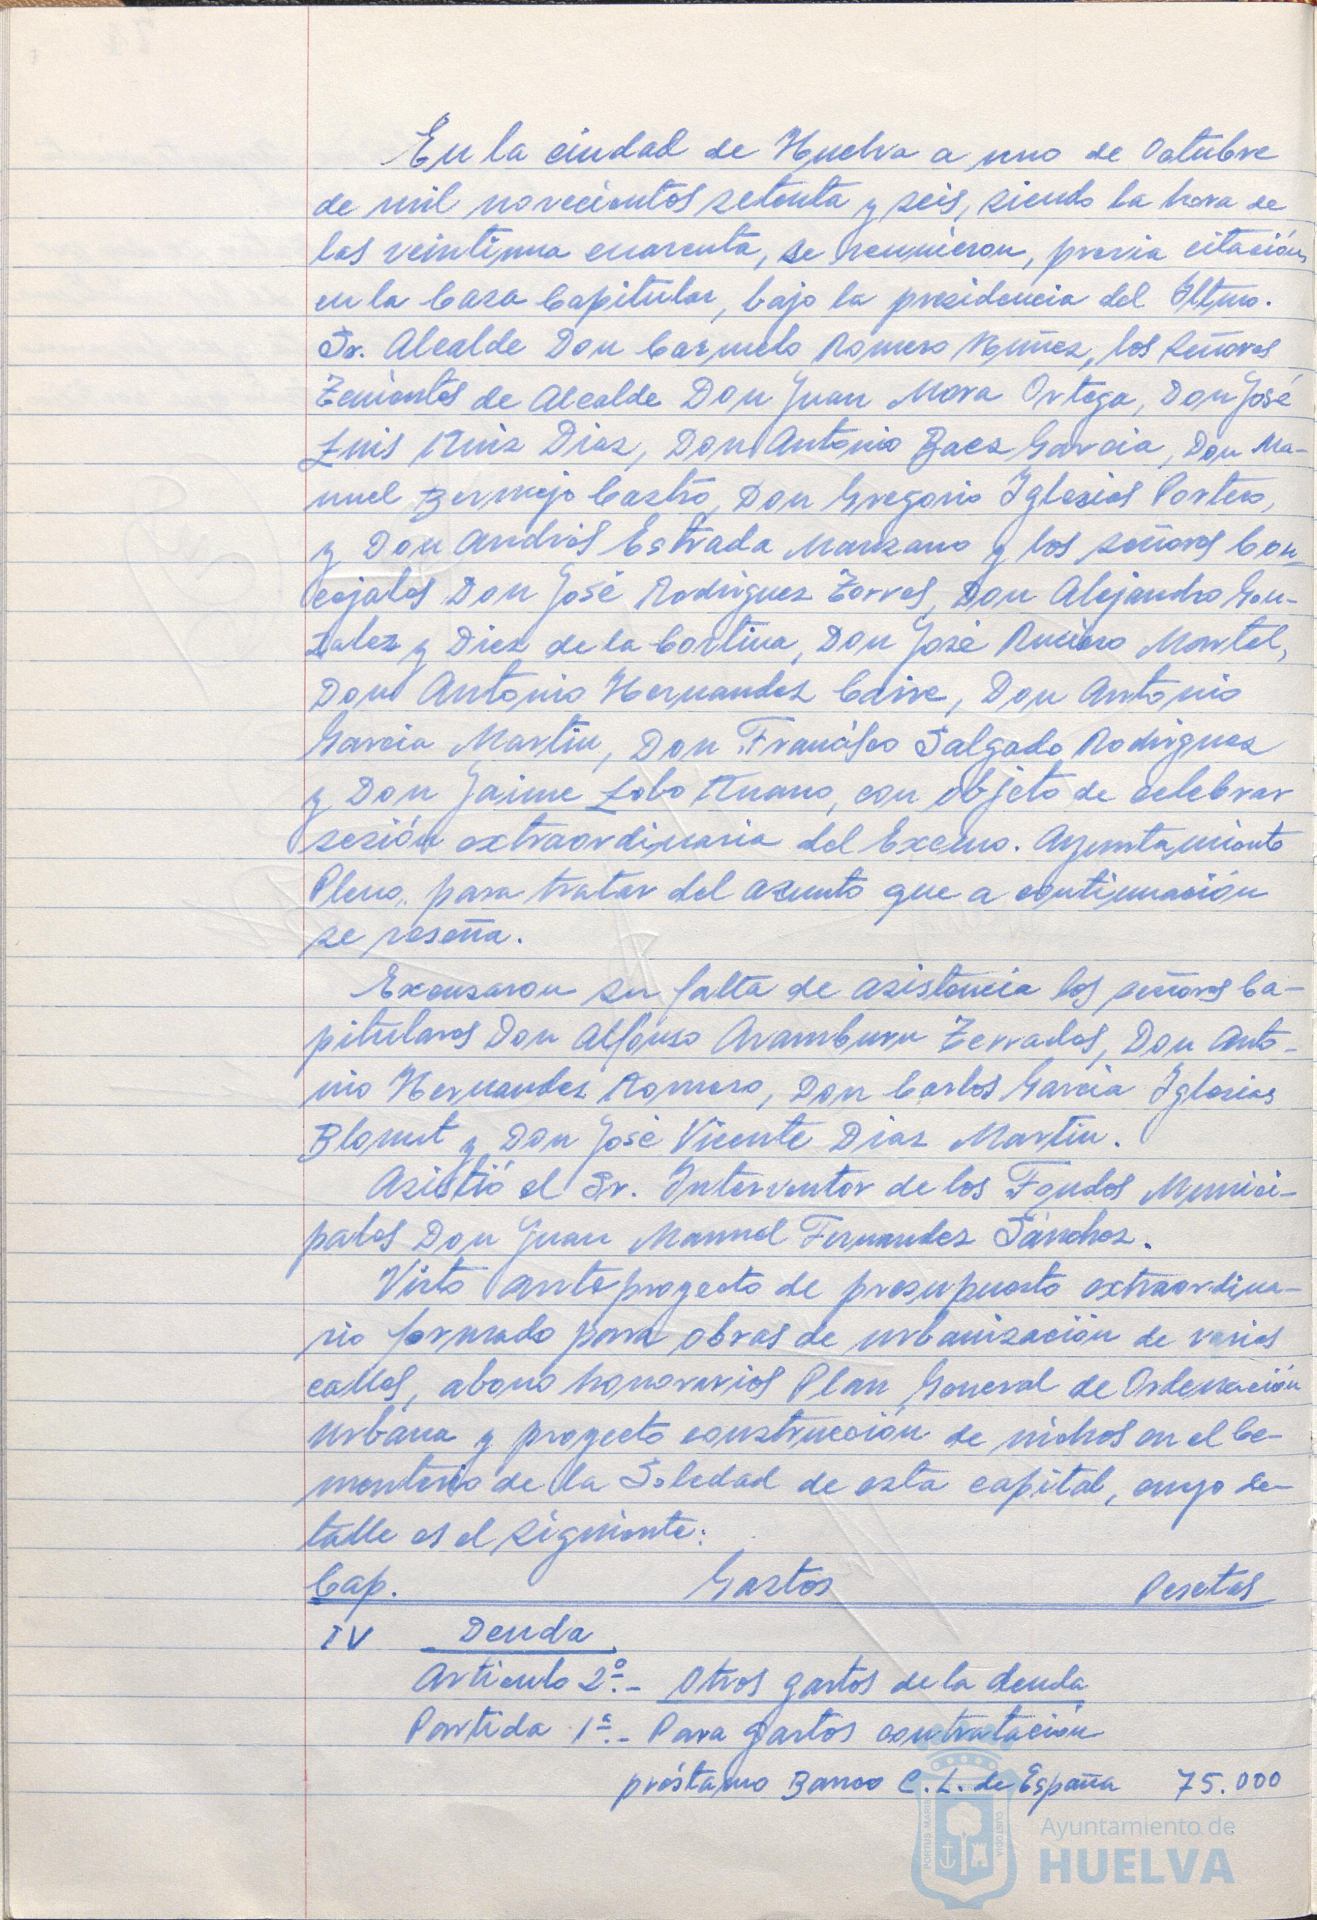 En la ciudad de Huelva a uno de Octubre
de mil novecientos setenta y seis, siendo la hora de
las veintiuna cuarenta, se reunieron, previa citación
en la Casa Capitular, bajo la presidencia del Iltmo.
Sr. Alcalde Don Carmelo Romero Núñez, los señores
Tenientes de Alcalde Don Juan Mora Ortega, Don José
Luis Ruiz Diaz, Don Antonio Baez Garcia, Don Ma-
nuel Bermejo Castro, Don Gregorio Iglesias Portero,
y Don Andrés Estrada Manzano y los señores Con-
cejales Don José Rodriguez Torres, Don Alejandro Gon-
zalez y Diez de la Cortina, Don José Martel,
Don Antonio Hernandez Don Antonio
Garcia Martin, Don Francisco Salgado Rodriguez
y Don Jaime Lobo Ruano, con objeto de celebrar
sesión extraordinaria del Excmo. Ayuntamiento
Pleno, para tratar del asunto que a continuación
se reseña.
Excusaron su falta de asistencia los señores Ca-
pitulares Don Alfonso Aramburu Terrades, Don Anto-
nio Hernandez Romero, Don Carlos Garcia Iglesias
y Don José Vicente Diaz Martin.
Asistió el Sr. Interventor de los Fondos Munici-
pales Don Juan Manuel Fernandez Sánchez.
Visto anteproyecto de presupuesto extraordina-
rio formado para obras de urbanización de varias
calles, abono honorarios Plan General de Ordenación
Urbana y proyecto construcción de nichos en el Ce-
menterio de la Soledad de esta capital, cuyo de-
talle es el siguiente:
Cap. Gastos Pesetas
IV Deuda
Articulo 2º.- Otros gastos de la deuda
Partida 1ª.- Para gastos contratación
préstamo Banco C. L. de España 75.000
PORTUS MARIS CUSTODIA
Ayuntamiento de
HUELVA